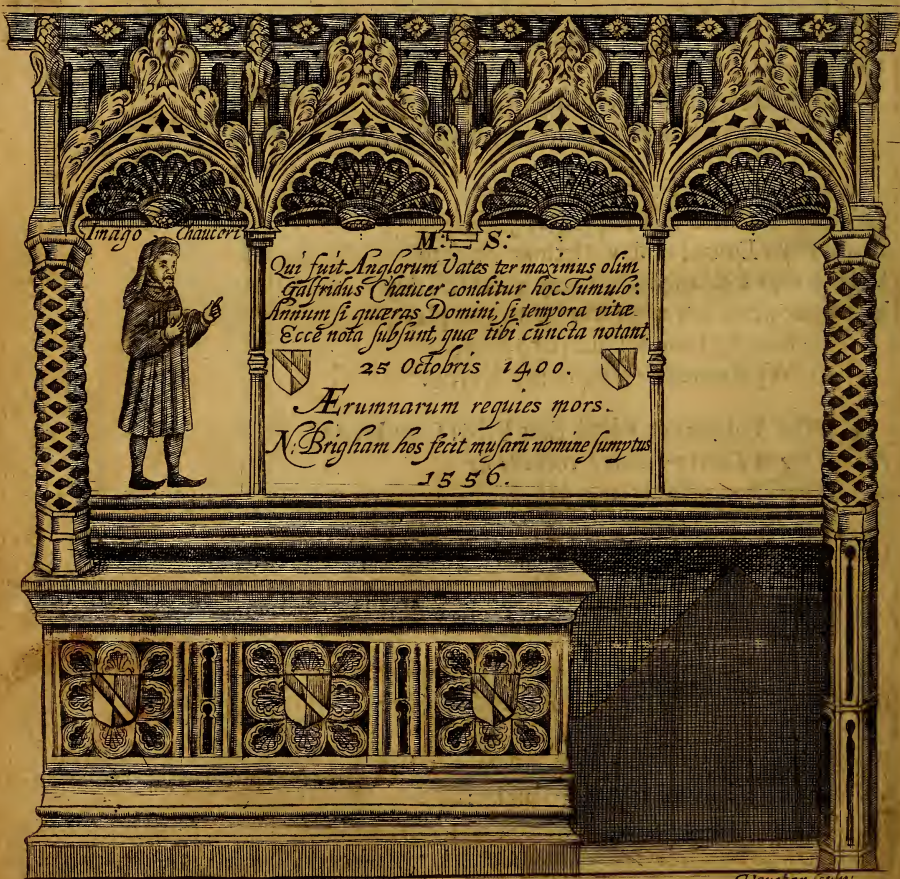 Imago Chauceri
M: S:
Qui fuit Anglorum Vates ter maximus olim
Galfridus Chaucer conditur hoc Tumulo:
Annum si quæras Domini, si tempora vitæ
Ecce nota subsunt, quæ tibi cuncta notant.
25 Octobris 1400.
Ærumnarum requies mors.
N: Brigham hos fecit musarũ nomine sumptus
1556.